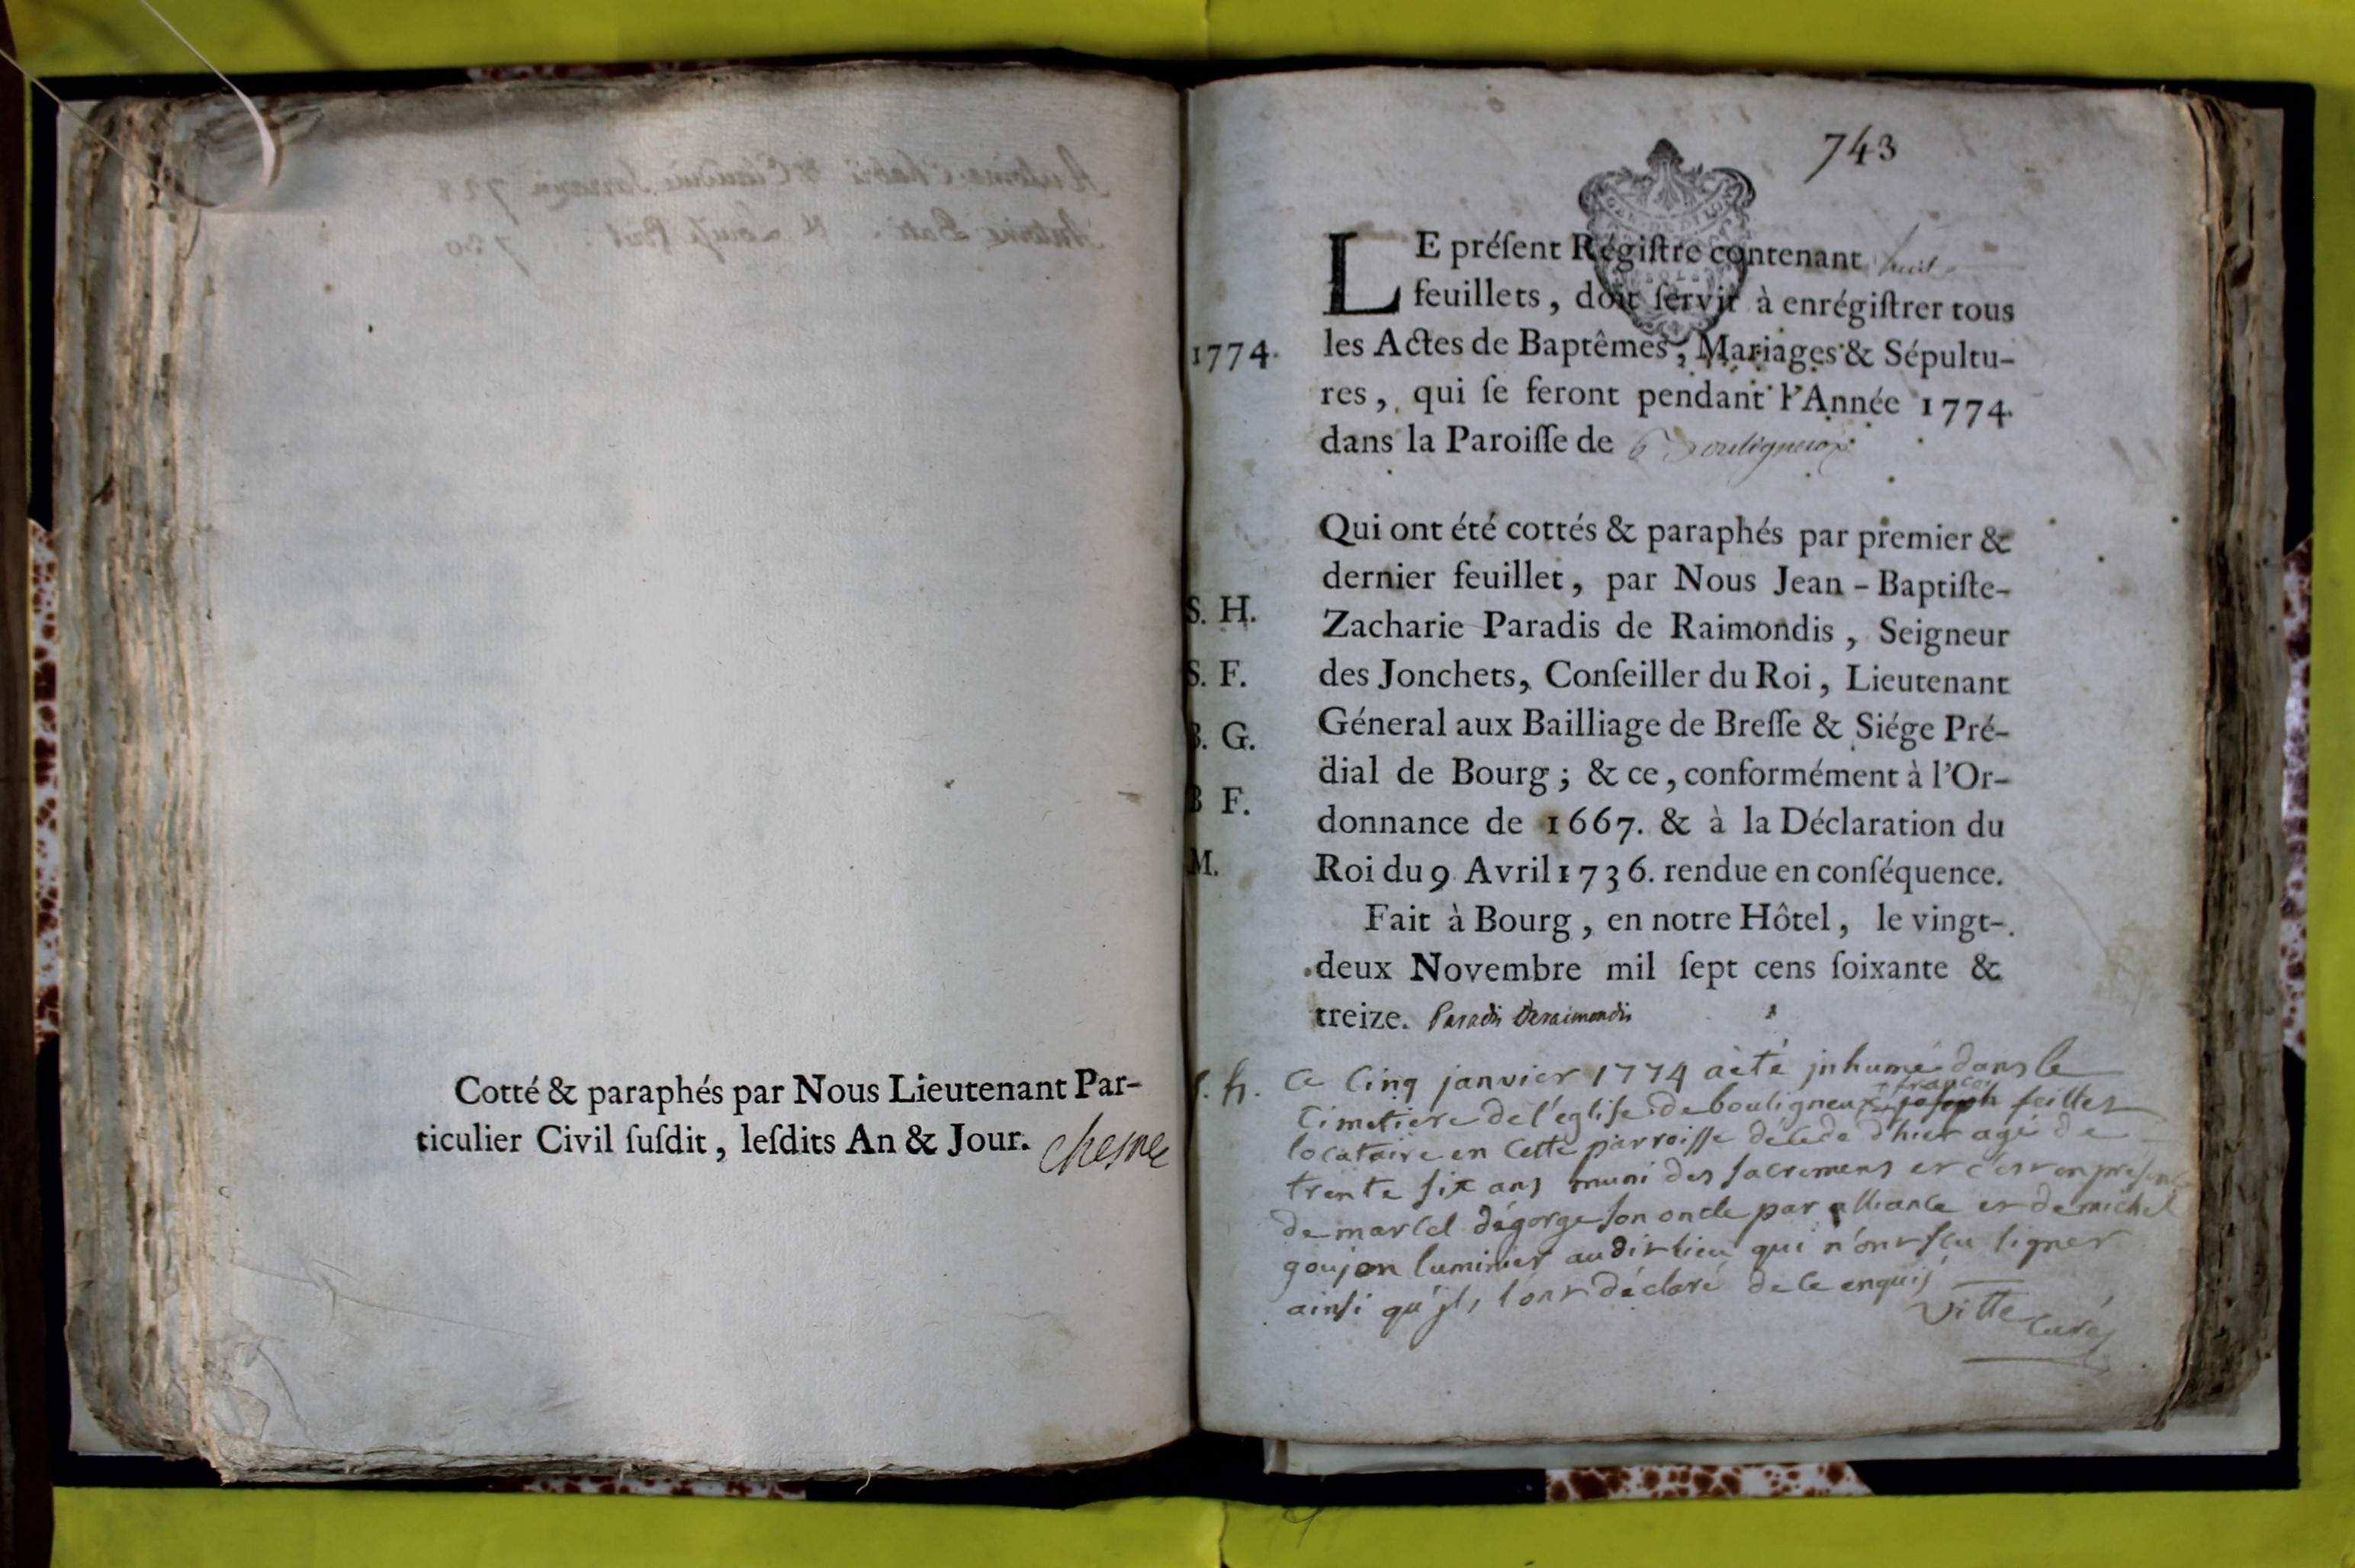 Cotté & paraphés par Nous Lieutenant Par-
ticulier Civil ſuſdit, leſdits An & Jour. Chesne
743
LE préſent Régiſtre contenant huit
feuillets, doit ſervir à enrégiſtrer tous
1774. les Actes de Baptêmes, Mariages & Sépultu-
res, qui ſe feront pendant l'Année 1774.
dans la Paroiſſe de Bouligneux
Qui ont été cottés & paraphés par premier &
dernier feuillet, par Nous Jean-Baptiſte-
S. H.
Zacharie Paradis de Raimondis, Seigneur
S. F.
des Jonchets, Conſeiller du Roi, Lieutenant
B. G.
Géneral aux Bailliage de Breſſe & Siége Pré-
dial de Bourg; & ce, conformément à l'Or-
B F.
donnance de 1667. & à la Déclaration du
M.
Roi du 9 Avril 1736. rendue en conſéquence.
Fait à Bourg, en notre Hôtel, le vingt-
deux Novembre mil ſept cens ſoixante &
treize. Paradis Deraimondis
S. h. Ce cinq janvier 1774 a èté jnhumé dans le
cimetiere de l'eglise de bouligneux françois joseph feilles
locataire en cette parroisse decede d'hier agé de
trente six ans muni des sacremens et c'est en présence
de marcel dégorge son oncle par alliance et de michel
goujon luminier audit lieu qui n'ont sçu signer
ainsi qu'jls l'ont déclaré de ce enquis
Vitte curé